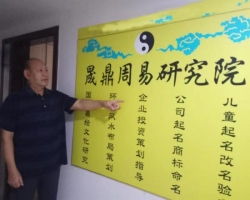 晟鼎周易研究院
儿童起名改名验
公司起名商标命名
企业投资策划指导
环风水布局策划
国文化研究